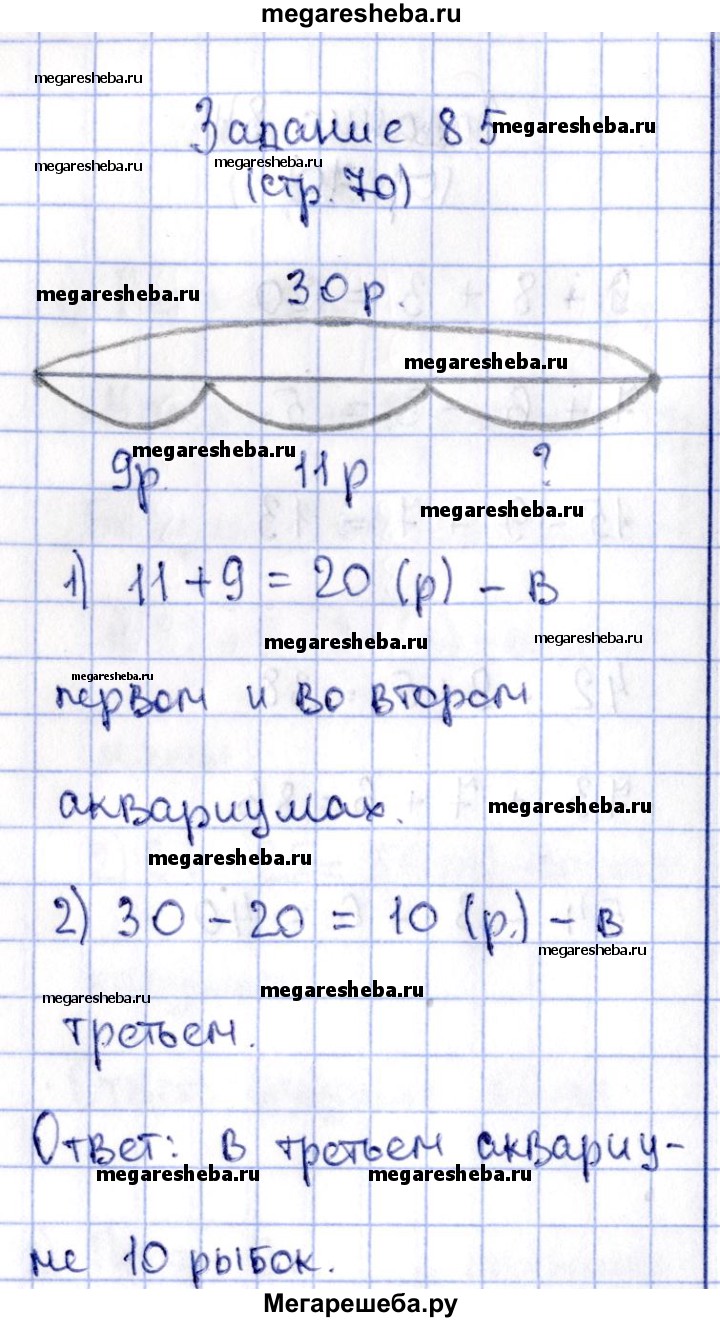 megaresheba.ru
megaresheba.ru
Задание 85 megaresheba.ru
megaresheba.ru megaresheba.ru
(стр. 70)
megaresheba.ru 30 р.
megaresheba.ru
megaresheba.ru
9р. 11р ?
megaresheba.ru
1) 11 + 9 = 20 (р) - в
megaresheba.ru megaresheba.ru
megaresheba.ru
первом и во втором
аквариумах. megaresheba.ru
megaresheba.ru
2) 30 - 20 = 10 (р.) - в
megaresheba.ru
megaresheba.ru megaresheba.ru
третьем.
Ответ: в третьем аквариу-
megaresheba.ru megaresheba.ru
ме 10 рыбок.
Мегарешеба.ру